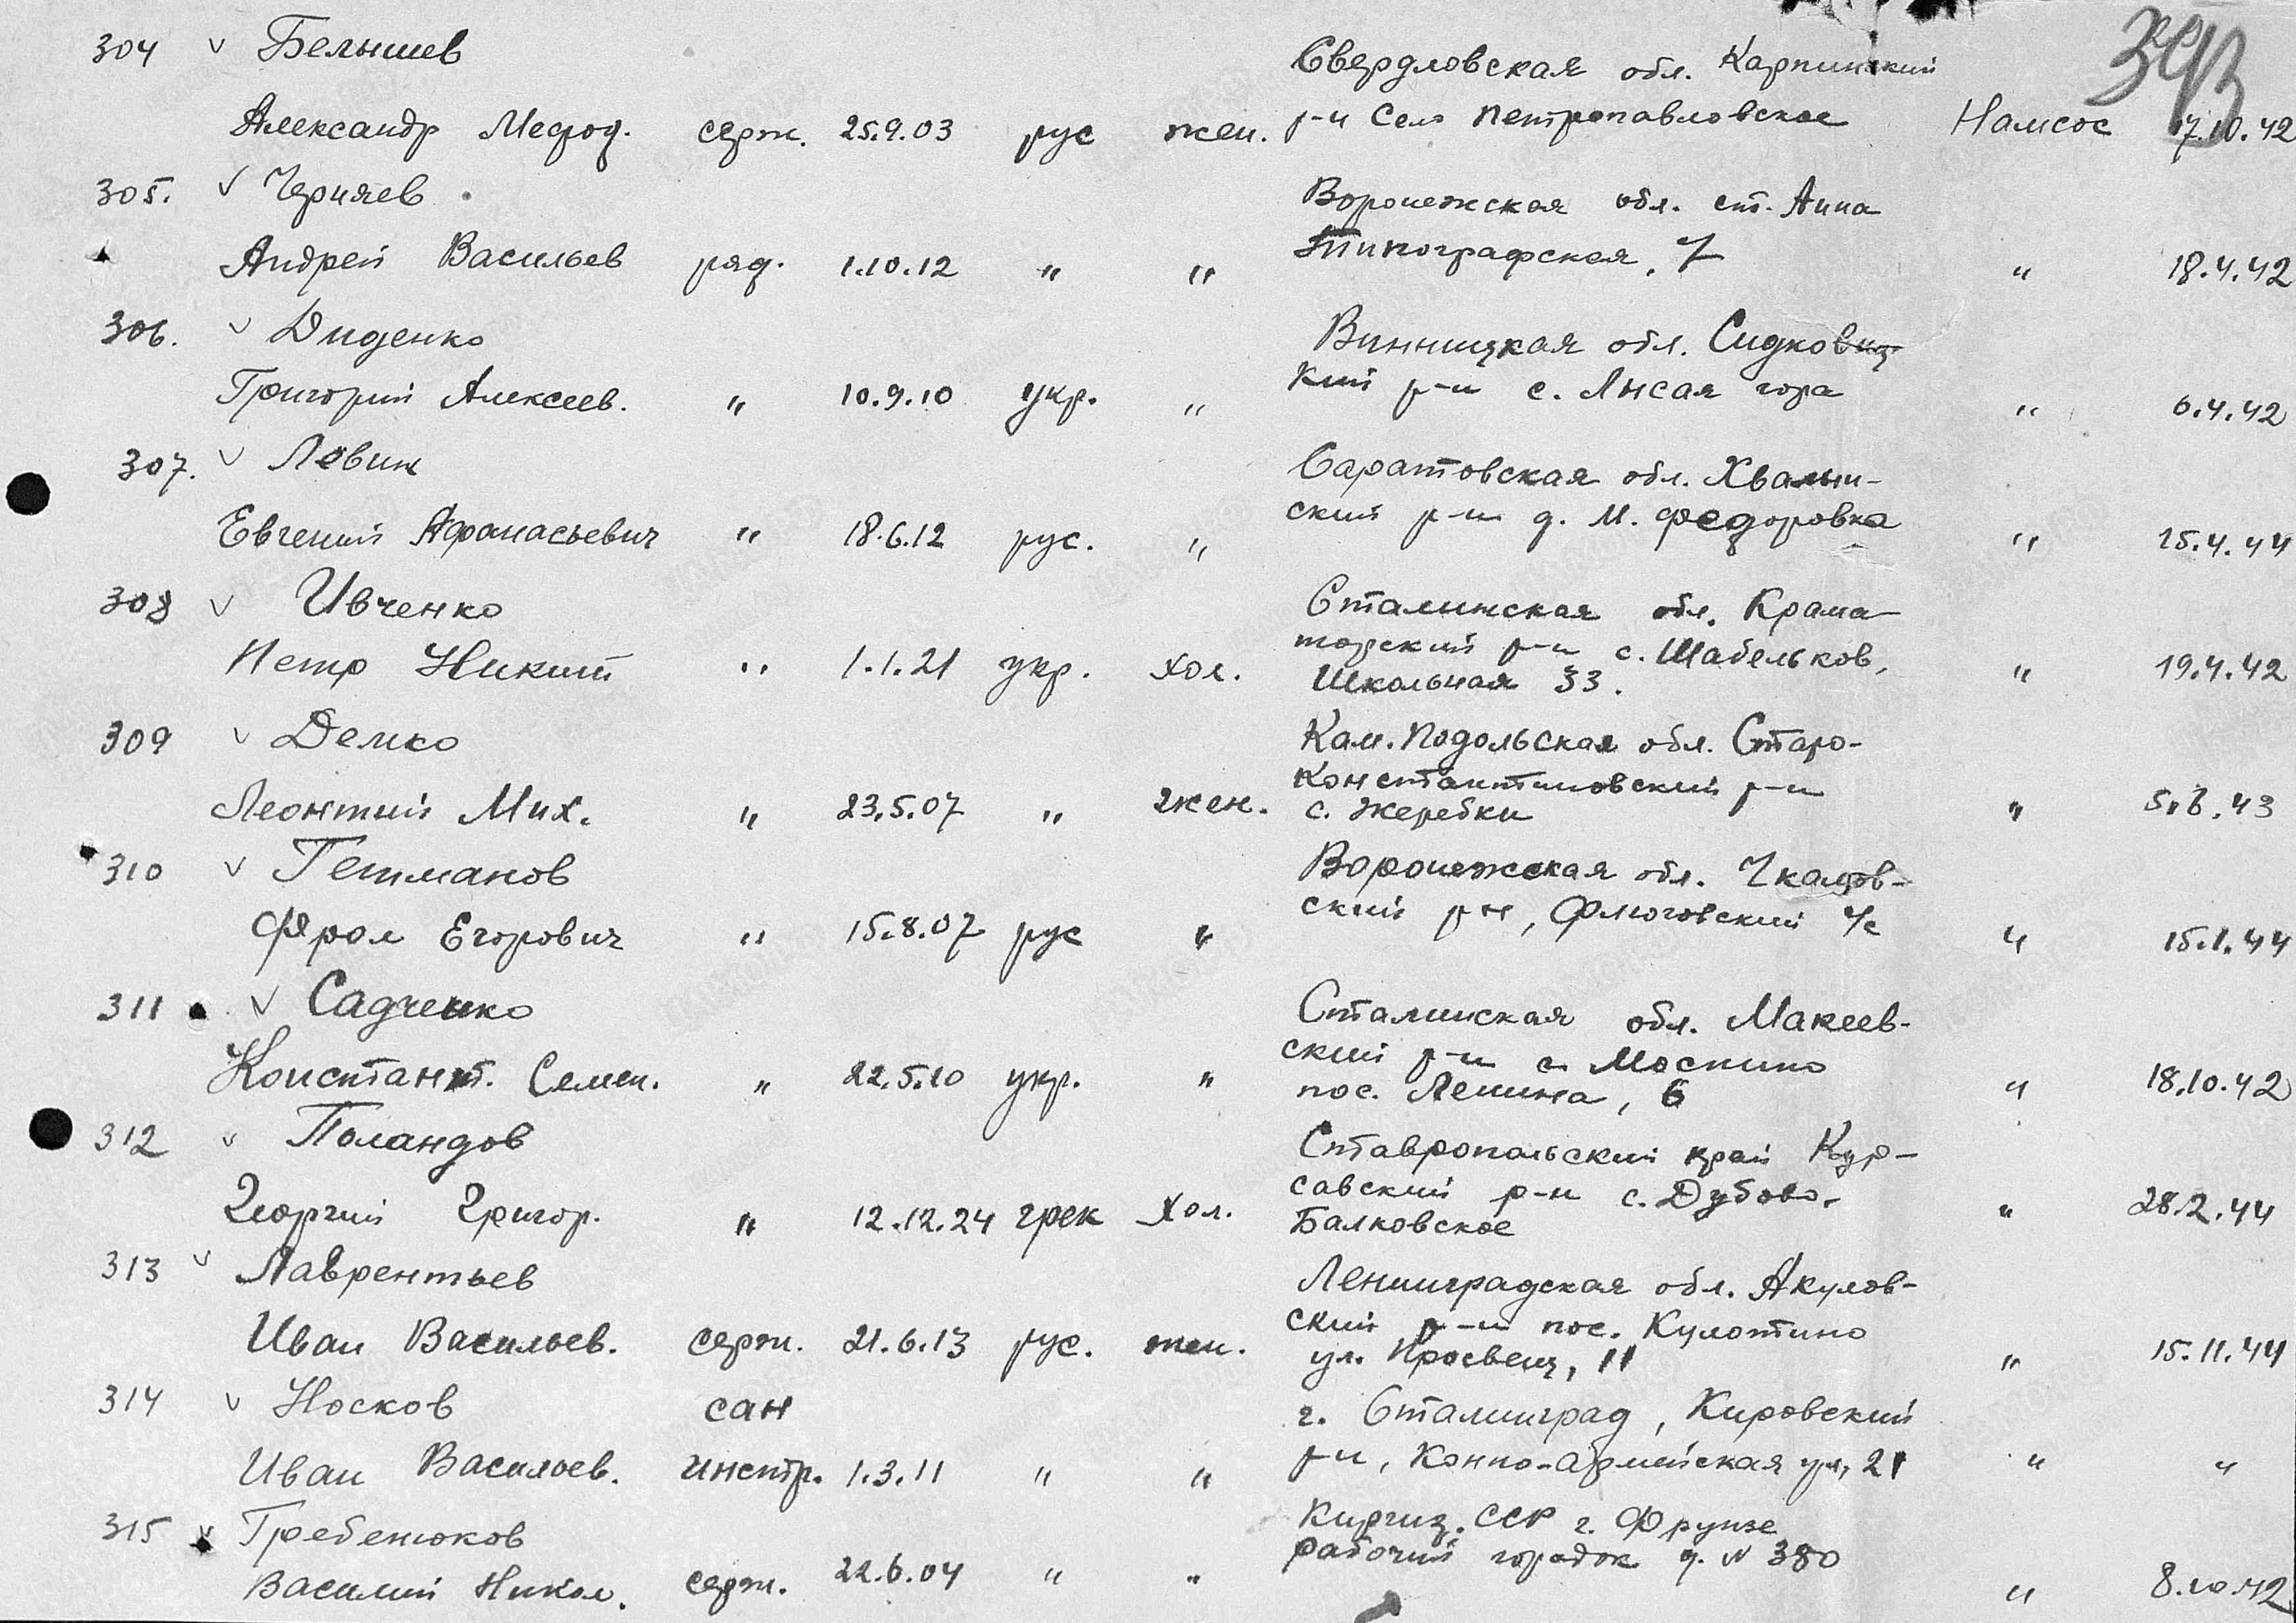 304 ѵ Белышев Свердловская обл. Карпинский
Александр Мефод. серж. 25.9.03 рус жен. р-н Село Петропавловское Намсос 17.10.42
305. ѵ Черняев Воронежская обл. ст. Анна
Андрей Васильев ряд. 1.10.12 " " Типографская, 7 " 18.4.42
306. ѵ Диденко Винницкая обл. Сидковиц
Григорий Алексеев. " 10.9.10 укр. " кий р-н с. Лысая гора " 6.4.42
307. ѵ Левин Саратовская обл. Хвалын-
Евгений Афанасьевич " 18.6.12 рус. " ский р-н д. М. Федоровка " 25.4.44
308 ѵ Ивченко Сталинская обл. Крама-
торский р-н с. Шабельков,
Петр Никит " 1.1.21 укр. хол. Школьная 33. " 19.4.42
309 ѵ Демко Кам. Подольская обл. Старо-
Константиновский р-н
Леонтий Мих. " 23.5.07 " жен. с. Жеребки " 5.6.43
310 ѵ Гетманов Воронежская обл. Чкалов-
Фрол Егорович " 15.8.07 рус " ский р-н, с/с " 15.1.44
311 ѵ Садченко Сталинская обл. Макеев-
ский р-н с. Моспино
Констант. Семен. " 22.5.10 укр. " пос. Ленина, 6 " 18.10.42
312 ѵ Поландов Ставропольский край Кур-
савский р-н с. Дубово-
Георгий Григор. " 12.12.24 грек хол. Балковское " 28.2.44
313 ѵ Лаврентьев Ленинградская обл. Акулов-
ский р-н пос. Кулотино
Иван Васильев. серж. 21.6.13 рус. жен. ул. Просвещ, 11 " 15.11.44
314 ѵ Носков сан г. Сталинград, Кировский
Иван Васильев. инстр. 1.3.11 " " р-н, Конно-армейская ул, 21 " "
315 ѵ Гребенюков Киргиз. ССР г. Фрунзе
Василий Никол. серж. 22.6.04 " " Рабочий городок д. № 380 " 8.10.42